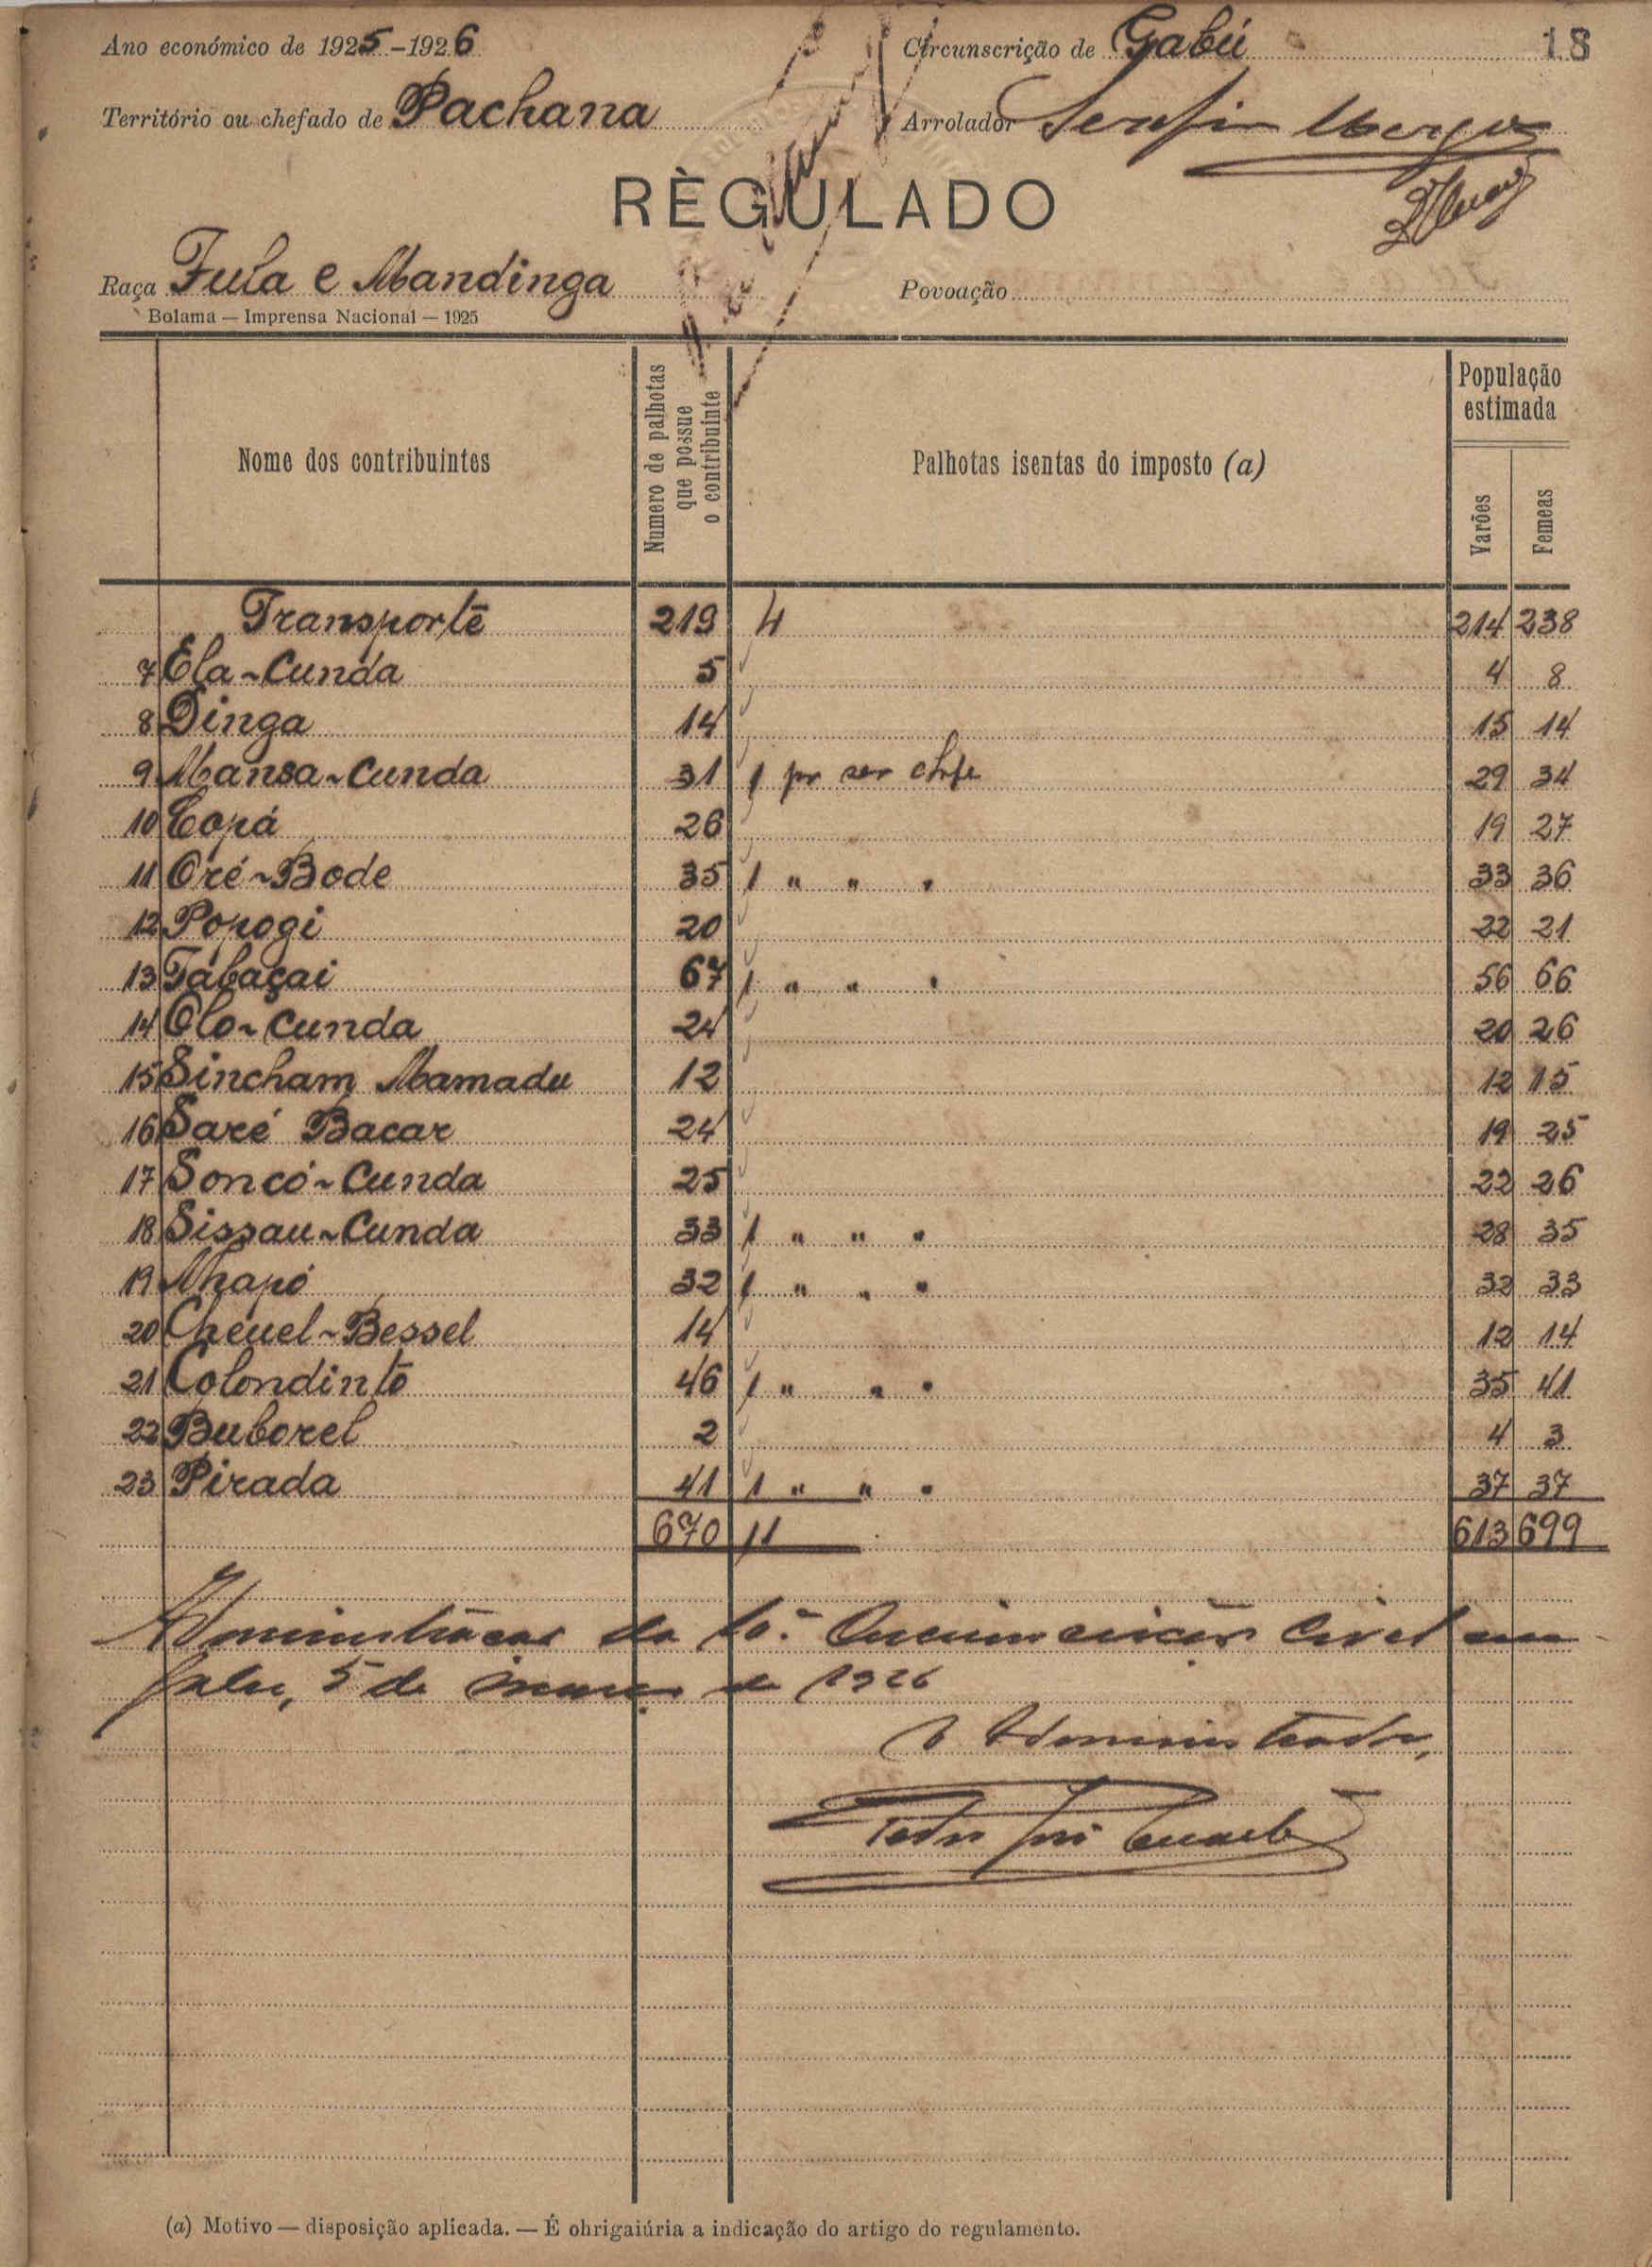 Ano económico de 1925-1926 Circunscrição de Gabú 18
Território ou chefado de Pachana Arrolador Serafim
RÈGULADO
Raça Fula e Mandinga Povoação
Bolama — Imprensa Nacional — 1925
Nome dos contribuintes Numero de palhotas que possue o contribuinte Palhotas isentas do imposto (a) População estimada Varões Femeas
Transporte 219 4 214 238
7 Ela-Cunda 5 4 8
8 Dinga 14 15 14
9 Mansa-Cunda 31 1 por ser chefe 29 34
10 Copá 26 19 27
11 Oré-Bode 35 1 " " " 33 36
12 Popogi 20 22 21
13 Tabaçai 67 1 " " " 56 66
14 Olo-Cunda 24 20 26
15 Sincham Mamadu 12 12 15
16 Saré Bacar 24 19 25
17 Soncó-Cunda 25 22 26
18 Sissau-Cunda 33 1 " " " 28 35
19 Nhapó 32 1 " " " 32 33
20 Cheuel-Bessel 14 12 14
21 Colondinto 46 1 " " " 35 41
22 Buborel 2 4 3
23 Pirada 41 1 " " " 37 37
670 11 613 699
Administração da Circunscrição Civil em
Gabu, 5 de março de 1926
O Administrador,
Pedro José Duarte
(a) Motivo — disposição aplicada. — É obrigaiúria a indicação do artigo do regulamento.